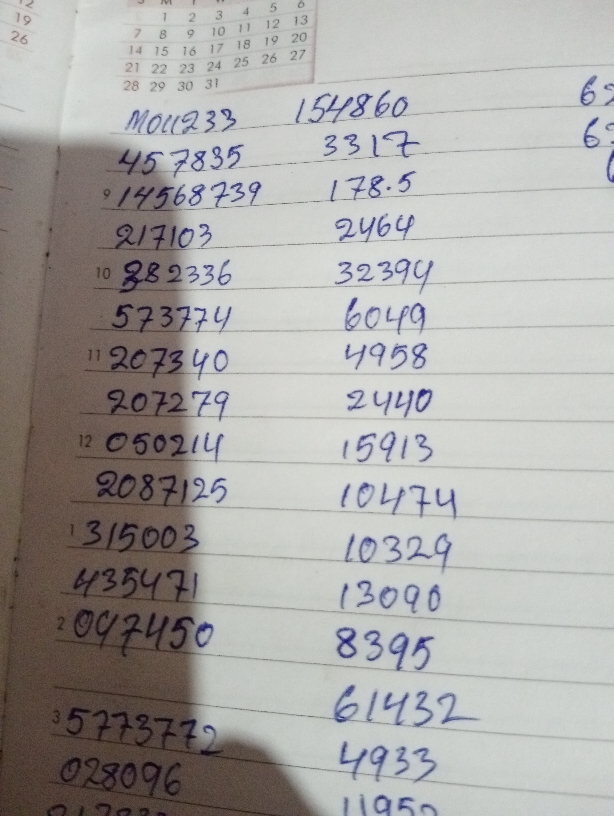 12
19
26
S M T W
1 2 3 4 5 6
7 8 9 10 11 12 13
14 15 16 17 18 19 20
21 22 23 24 25 26 27
28 29 30 31
154860
457835 3317
9 14568739 178.5
217103 2464
10 382336 32394
573774 6049
11 207340 4958
207279 2440
12 050214 15913
2087125 10474
1 315003 10329
435471 13090
2 047450 8395
61432
3 5773772 4933
028096